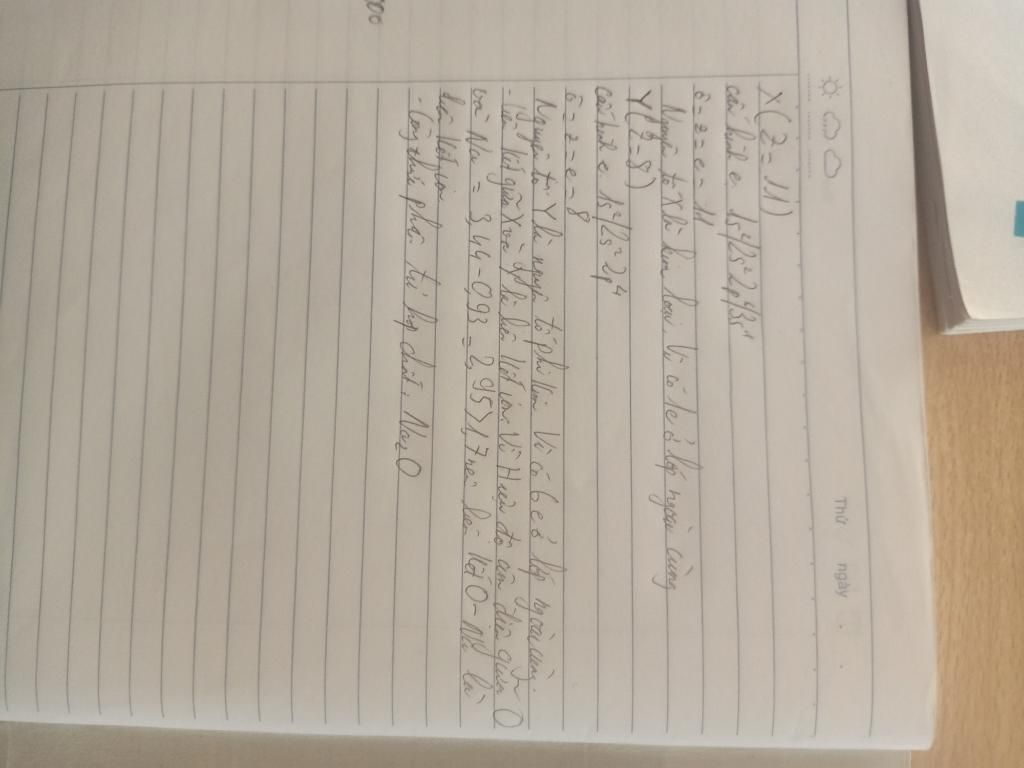 Thứ ngày
X(Z=11)
cấu hình e 1s²/2s²2p⁶/3s¹
ô = z = e = 11
Nguyên tố X là kim loại vì có 1e ở lớp ngoài cùng
Y(Z=8)
cấu hình e 1s²/2s²2p⁴
ô = z = e = 8
Nguyên tố Y là nguyên tố phi kim vì có 6e ở lớp ngoài cùng.
- Liên kết giữa X và Y là liên kết ion vì Hiệu độ âm điện giữa O
và Na = 3,44-0,93=2,95>1,7 nên liên kết O-Na là
liên kết ion
- Công thức phân tử hợp chất: Na₂O
000